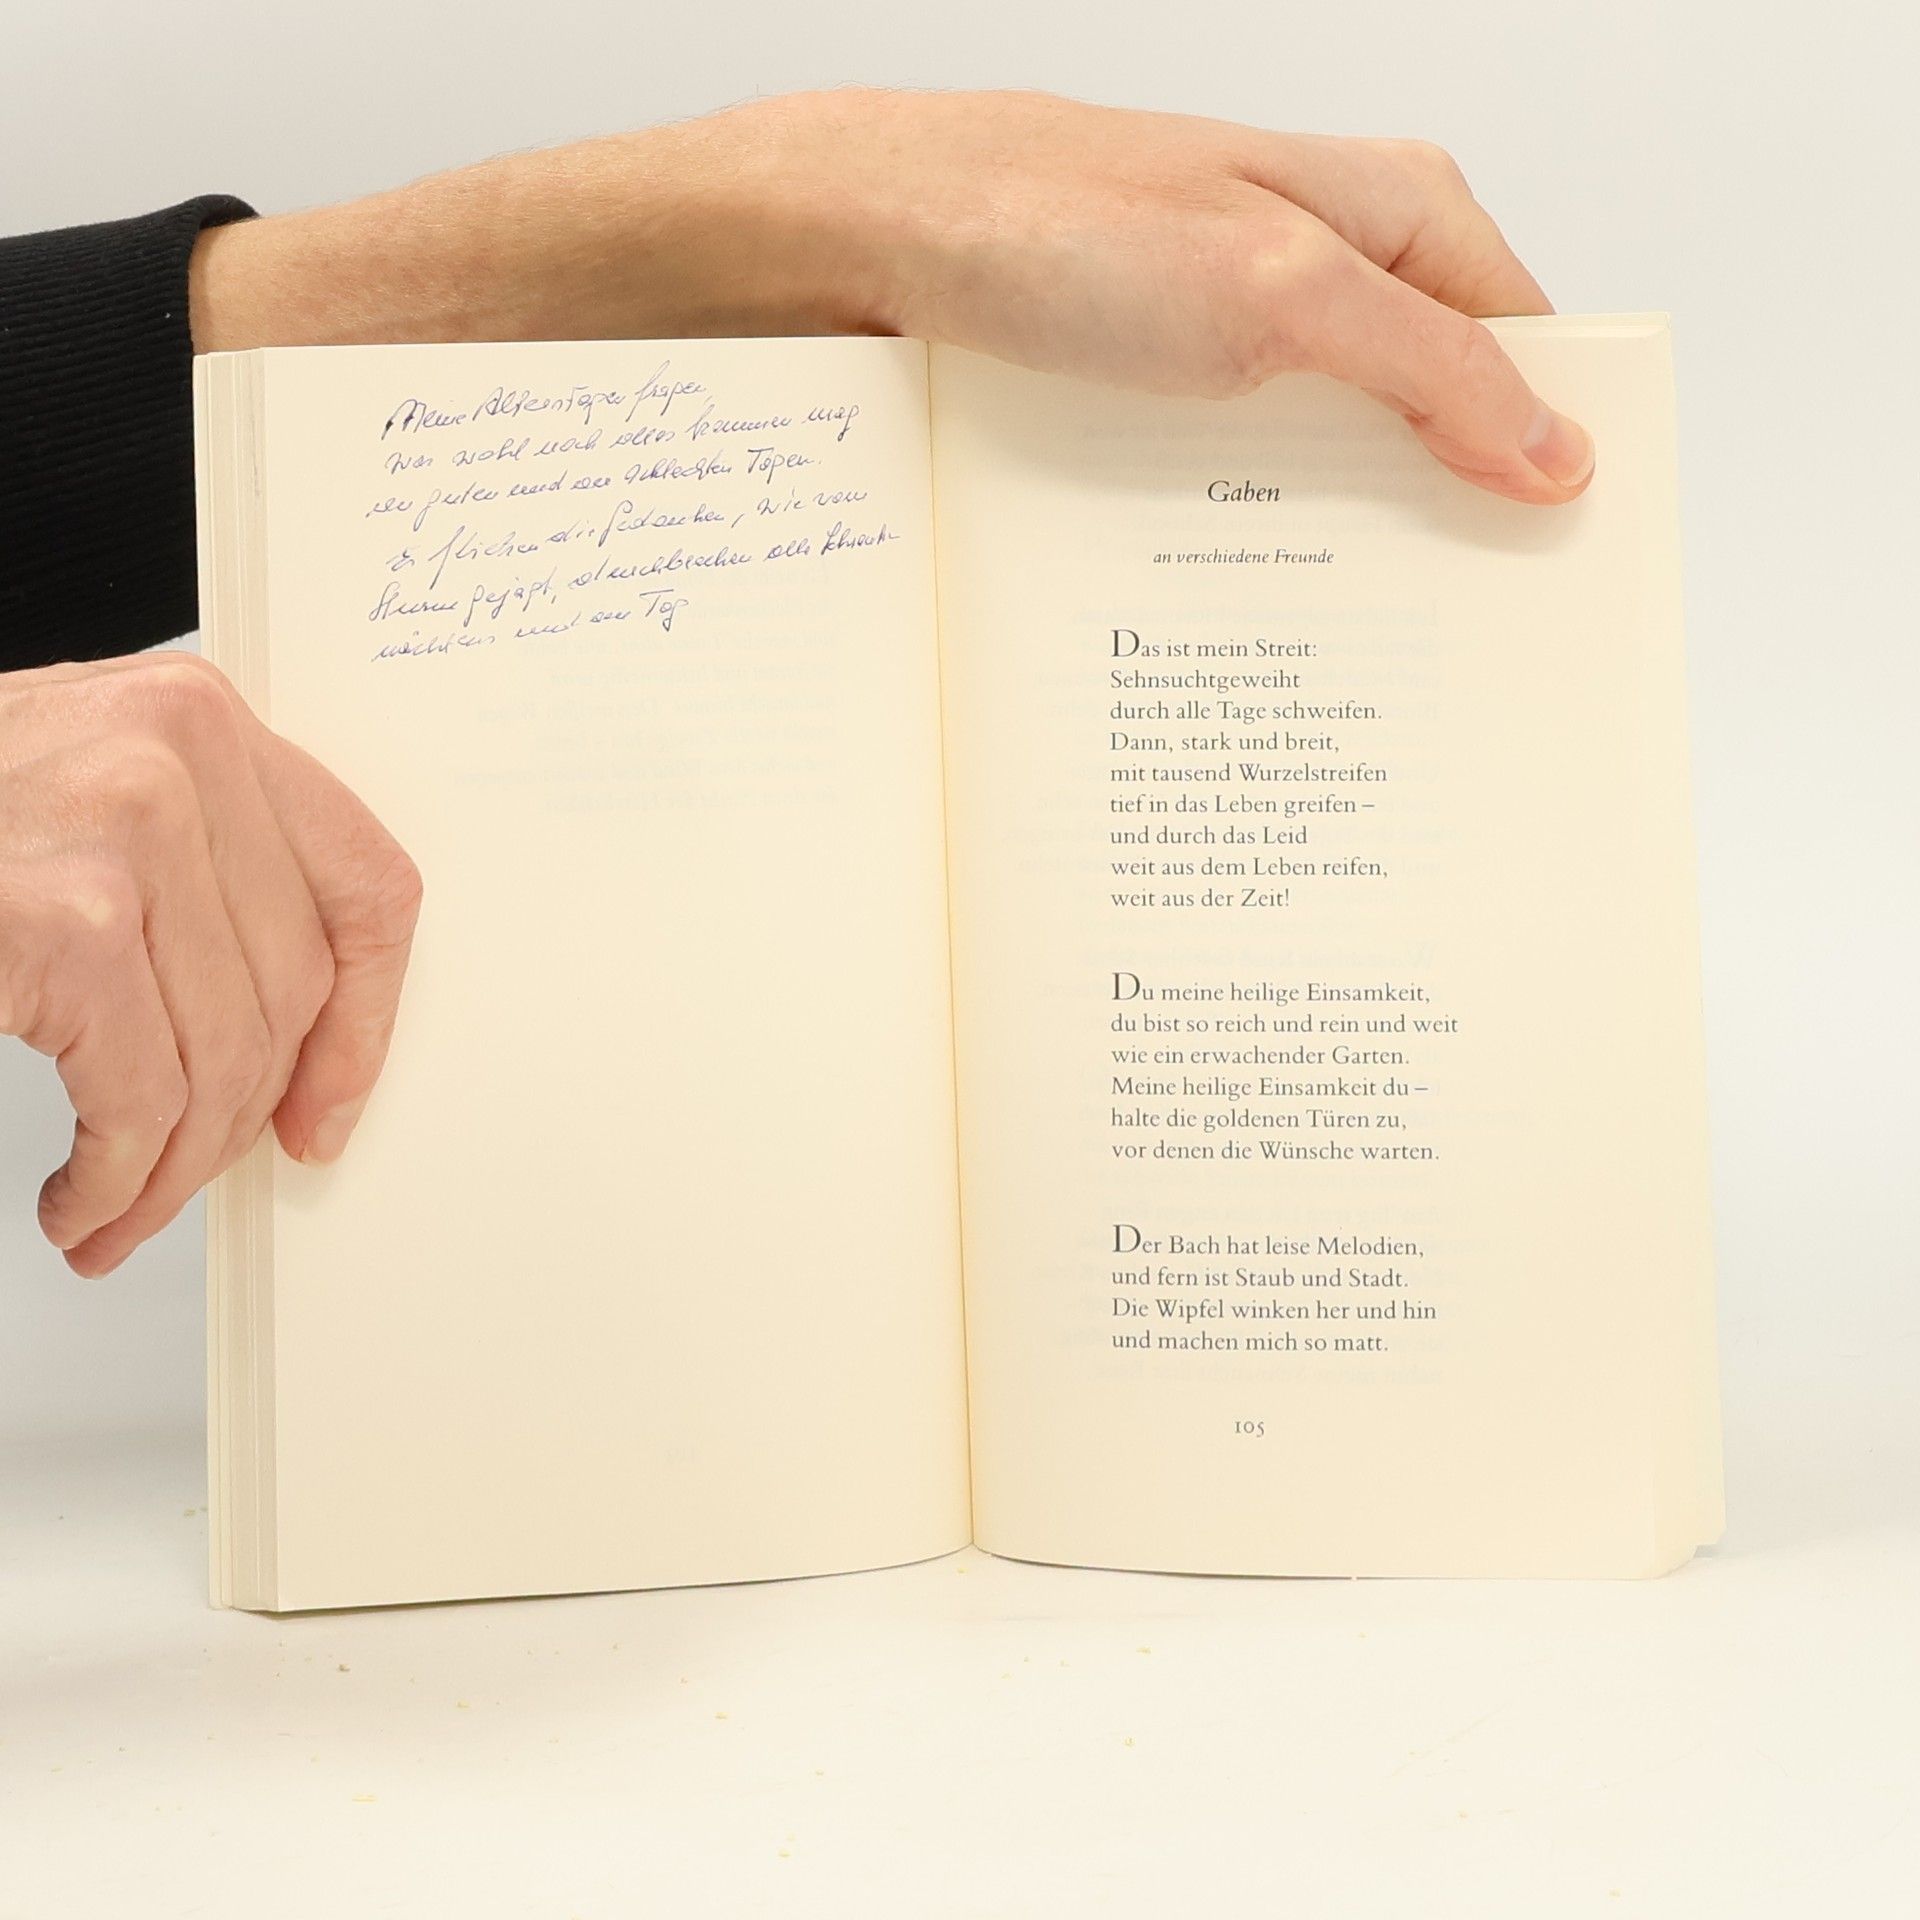 Meine Alterstagen fragen,
was wohl noch alles kommen mag
an guten und an schlechten Tagen.
Es fliehen die Gedanken, wie vom
Sturm gejagt, durchbrechen alle Schranken
nächtens und am Tag
Gaben
an verschiedene Freunde
Das ist mein Streit:
Sehnsuchtgeweiht
durch alle Tage schweifen.
Dann, stark und breit,
mit tausend Wurzelstreifen
tief in das Leben greifen –
und durch das Leid
weit aus dem Leben reifen,
weit aus der Zeit!
Du meine heilige Einsamkeit,
du bist so reich und rein und weit
wie ein erwachender Garten.
Meine heilige Einsamkeit du –
halte die goldenen Türen zu,
vor denen die Wünsche warten.
Der Bach hat leise Melodien,
und fern ist Staub und Stadt.
Die Wipfel winken her und hin
und machen mich so matt.
105